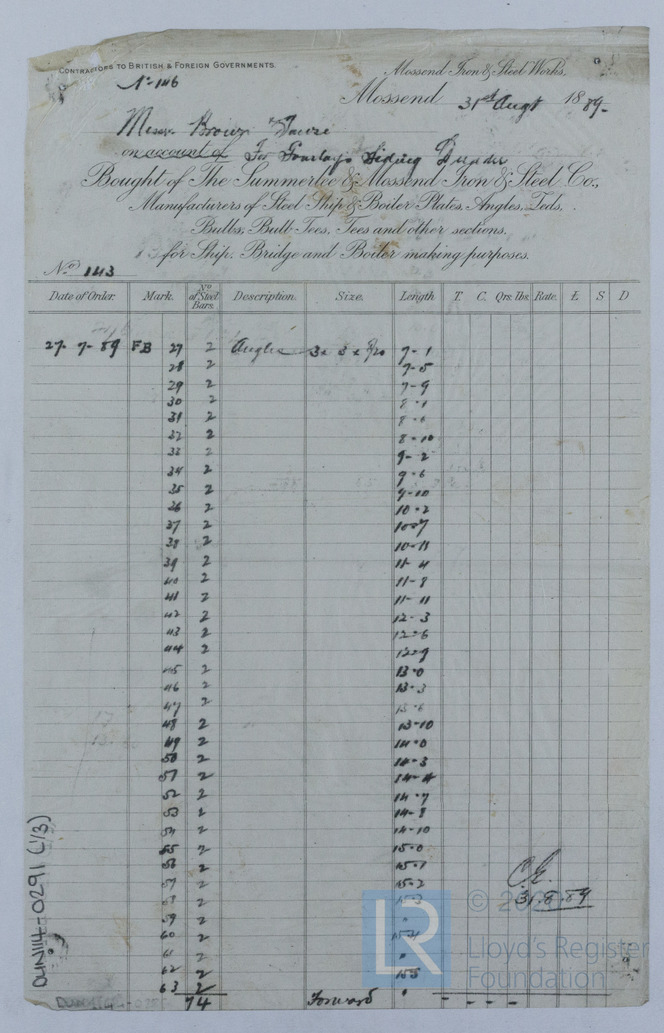 CONTRACTORS TO BRITISH & FOREIGN GOVERNMENTS.
No 146
Mossend Iron & Steel Works,
Mossend 31st Augt 1889.
Messrs Brown
on account of For Siding Dundee
Bought of The Summerlee & Mossend Iron & Steel Co.,
Manufacturers of Steel Ship & Boiler Plates, Angles, Zeds,
Bulbs, Bulb Tees, Tees and other sections.
for Ship, Bridge and Boiler making purposes.
No. 143
Date of Order. Mark. No. of Steel Bars. Description. Size. Length T. C. Qrs. lbs. Rate. £ S D
27-7-89 FB 27 2 Angles 3 x 3 x 7-1
28 2 7-5
29 2 7-9
30 2 8-1
31 2 8-6
32 2 8-10
33 2 9-2
34 2 9-6
35 2 9-10
36 2 10-2
37 2 10-7
38 2 10-11
39 2 11-4
40 2 11-8
41 2 11-11
42 2 12-3
43 2 12-6
44 2 12-9
45 2 13-0
46 2 13-3
47 2 13-6
48 2 13-10
49 2 14-0
50 2 14-3
51 2 14-4
52 2 14-7
53 2 14-8
54 2 14-10
55 2 15-0
56 2 15-1
57 2 15-2
58 2 15-3
59 2 "
60 2 15-4
61 2 "
62 2 15-5
63 2 "
74 Forward
31.8.89
DUN114-0291 (1/3)
LR
Lloyd's Register
Foundation